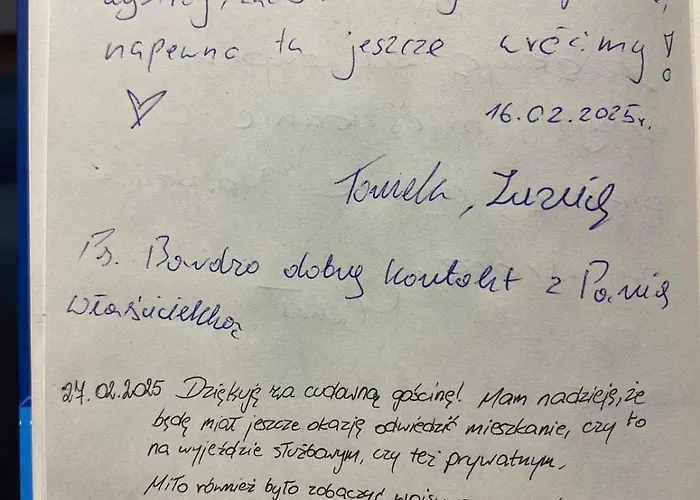 napewno tu jeszcze wrócimy!
16.02.2025r.
Ps. Bardzo dobry kontakt z Panią
właścicielką
27.02.2025 Dziękuję za cudowną gościnę! Mam nadzieję, że
będę miał jeszcze okazję odwiedzić mieszkanie, czy to
na wyjeździe służbowym, czy też prywatnym.
Miło również było zobaczyć